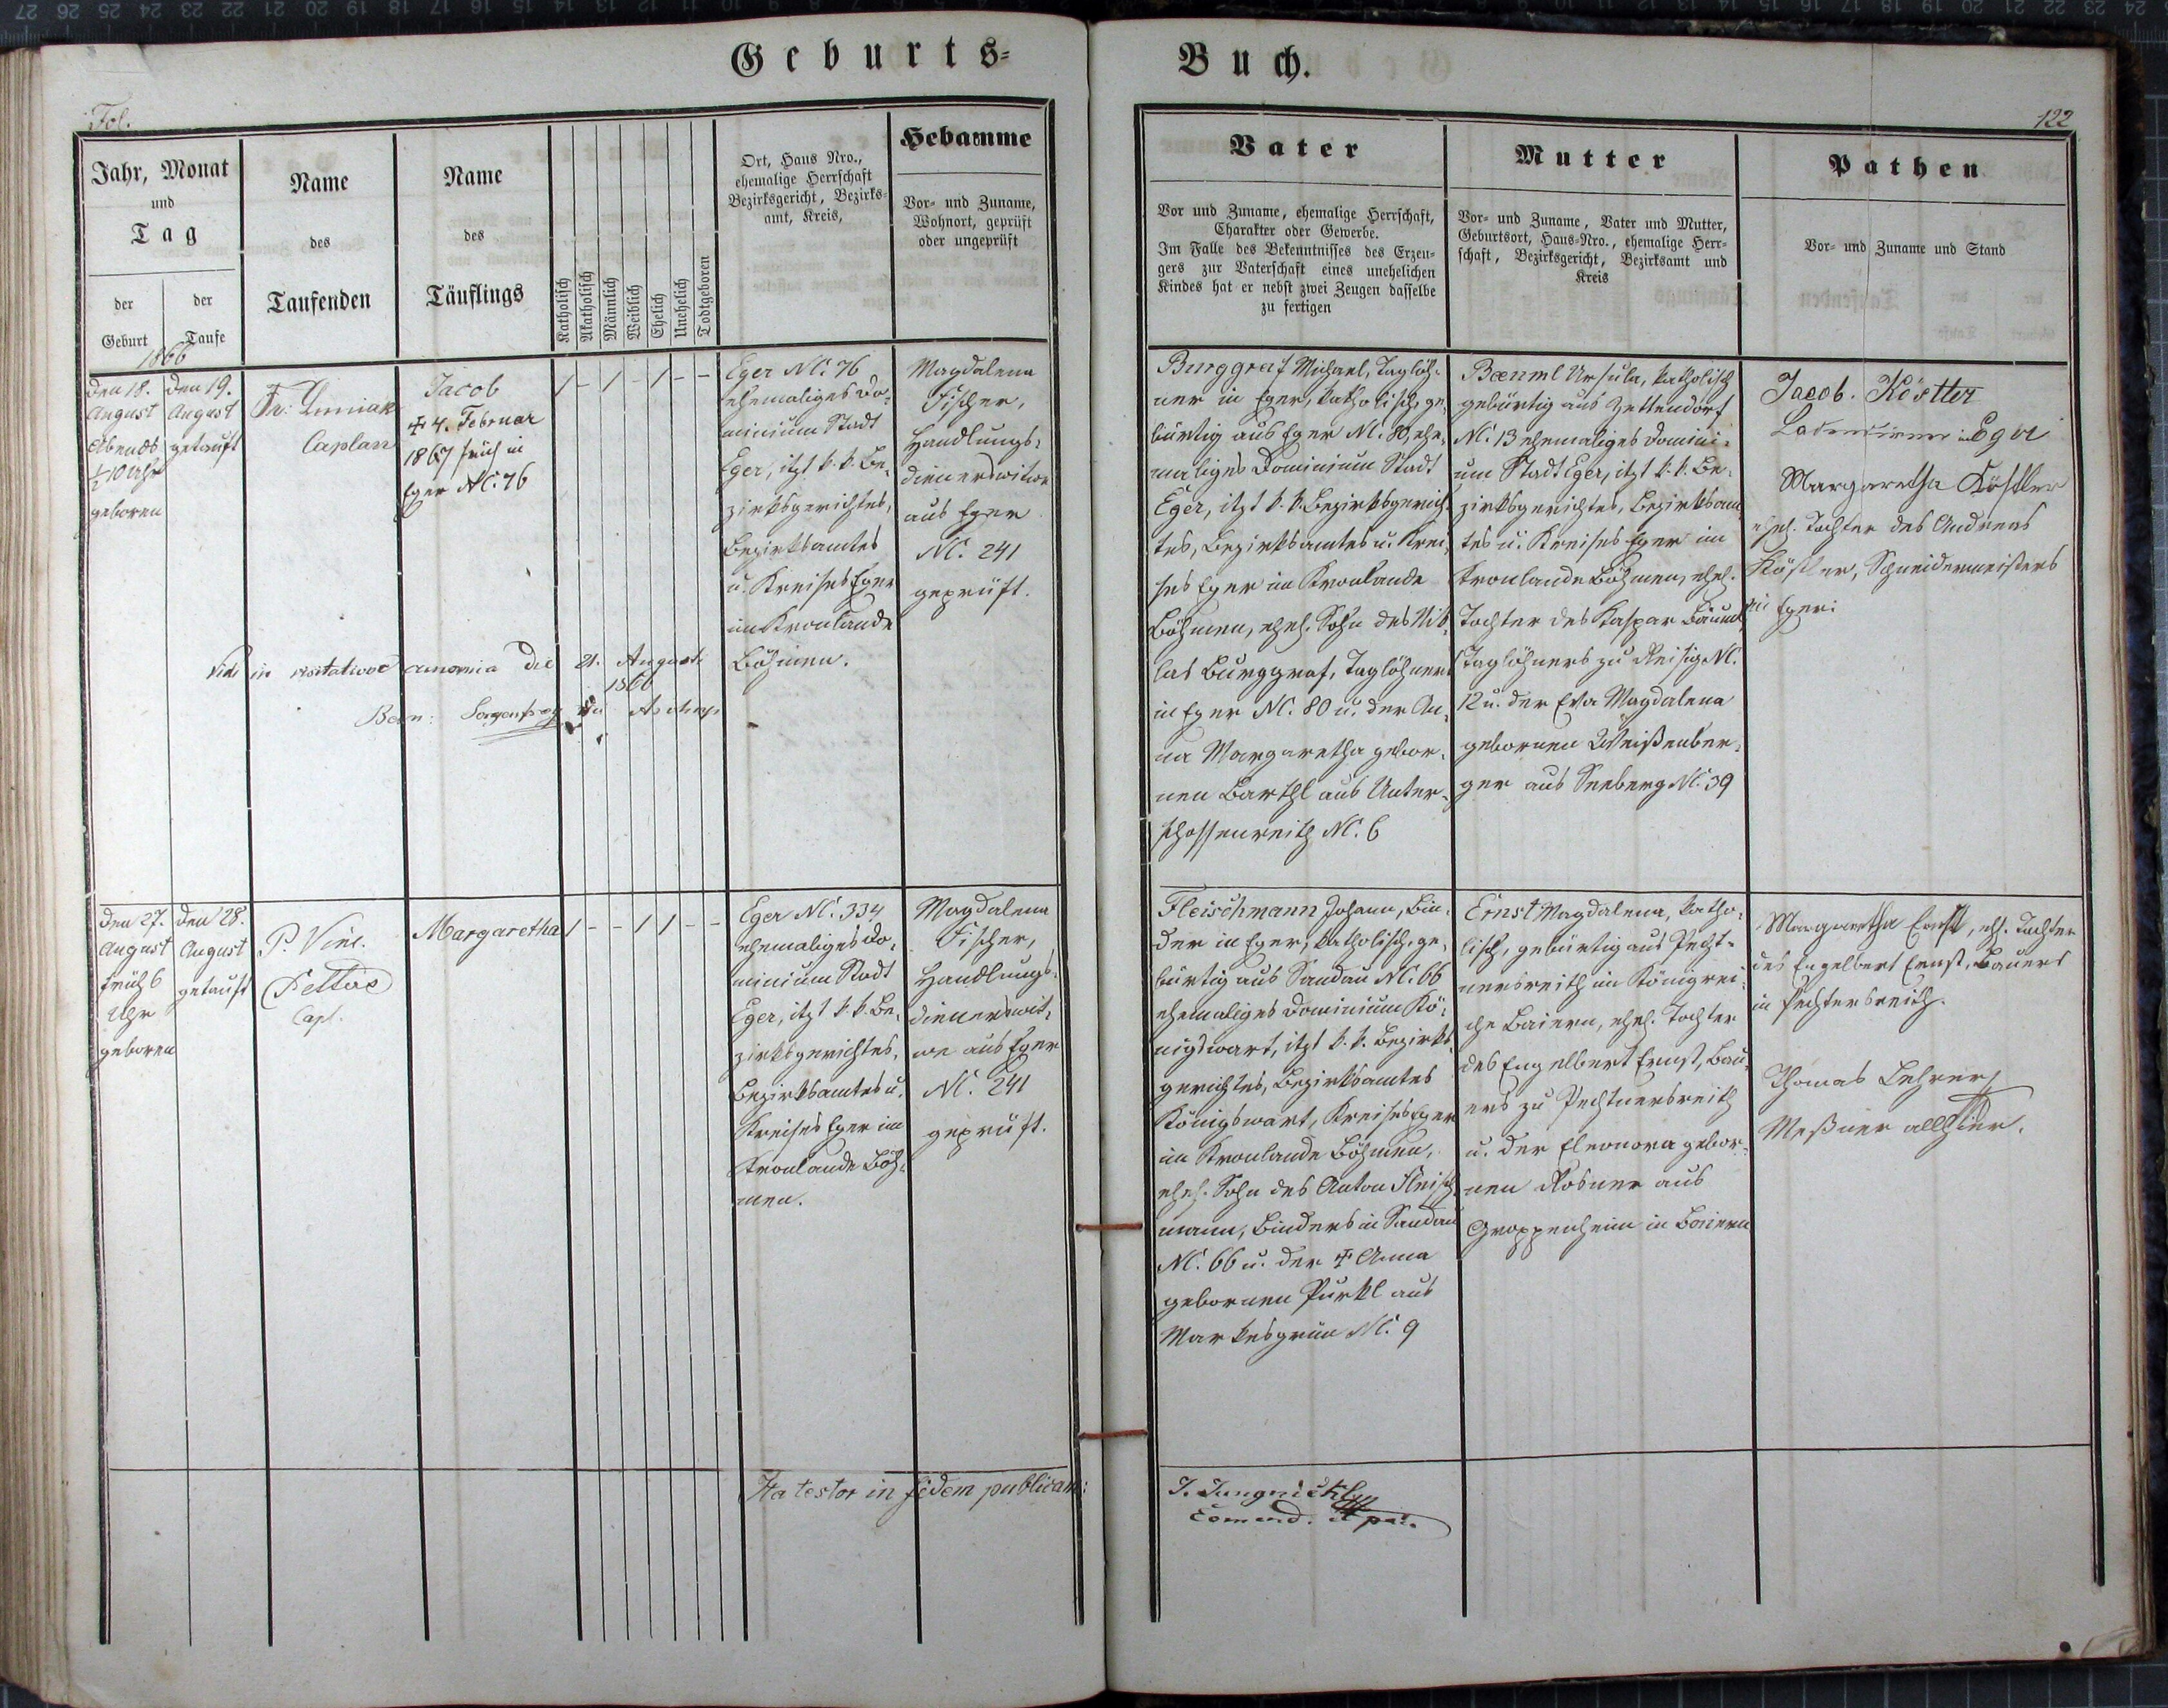 Geburts-
Buch.
Fol.
122
Jahr, Monat
und
Tag
der
Geburt
der
Taufe
Name
des
Taufenden
Name
des
Täuflings
Katholisch
Akatholisch
Männlich
Weiblich
Ehelich
Unehelich
Todtgeboren
Ort, Haus Nro.,
ehemalige Herrschaft
Bezirksgericht, Bezirks-
amt, Kreis,
Hebamme
Vor- und Zuname,
Wohnort, geprüft
oder ungeprüft
Vater
Vor und Zuname, ehemalige Herrschaft,
Charakter oder Gewerbe.
Im Falle des Bekenntnisses des Erzeu-
gers zur Vaterschaft eines unehelichen
Kindes hat er nebst zwei Zeugen dasselbe
zu fertigen
Mutter
Vor- und Zuname, Vater und Mutter,
Geburtsort, Haus-Nro., ehemalige Herr-
schaft, Bezirksgericht, Bezirksamt und
Kreis
Pathen
Vor- und Zuname und Stand
1866
den 18.
August
Abends
½ 10 Uhr
geboren
den 19.
August
getauft
Fr:
Caplan
Jacob
✝ 4. Februar
1867 früh in
Eger N: 76
/ - / - / - -
Eger N: 76
ehemaliges Do-
minium Stadt
Eger, itzt k. k. Be-
zirksgerichtes,
Bezirksamtes
u. Kreises Eger
im Kronlande
Böhmen.
Magdalena
Fischer,
Handlungs-
dienerswitwe
aus Eger
N: 241
geprüft.
Burggraf Michael, Taglöh-
ner in Eger, katholisch, ge-
bürtig aus Eger N: 80, ehe-
maliges Dominium Stadt
Eger, itzt k. k. Bezirksgerich-
tes, Bezirksamtes u. Krei-
ses Eger im Kronlande
Böhmen, ehel. Sohn des Nik-
las Burggraf, Taglöhners
in Eger N: 80 u. der An-
na Margaretha gebor-
nen Barthl aus Unter-
schossenreith N: 6
Baeuml Ursula, katholisch
gebürtig aus Zettendorf
N: 13 ehemaliges Domini-
um Stadt Eger, itzt k. k. Be-
zirksgerichtes, Bezirksam-
tes u. Kreises Eger im
Kronlande Böhmen, ehel.
Tochter des Kaspar Bäuml,
Taglöhners zu Reisig N:
12 u. der Eva Magdalena
gebornen Weißenber-
ger aus Seeberg N: 39
Jacob. Köstler
in Eger
Margaretha Köstler
ehel. Tochter des Andreas
Köstler, Schneidermeisters
in Eger:
Vidi in visitatione canonica die 21. Augusti
1866
den 27.
August
früh 6
Uhr
geboren
den 28.
August
getauft
P. Vinc.
Pettas
Capl.
Margaretha
/ - - / / - -
Eger N: 334
ehemaliges Do-
minium Stadt
Eger, itzt k. k. Be-
zirksgerichtes,
Bezirksamtes u.
Kreises Eger im
Kronlande Böh-
men.
Magdalena
Fischer,
Handlungs-
dienerswit-
we aus Eger
N: 241
geprüft.
Fleischmann Johann, Bin-
der in Eger, katholisch, ge-
bürtig aus Sandau N: 66
ehemaliges Dominium Kö-
nigswart, itzt k. k. Bezirks-
gerichtes, Bezirksamtes
Königswart, Kreises Eger
im Kronlande Böhmen,
ehel. Sohn des Anton Fleisch-
mann, Binders in Sandau
N: 66 u. der ✝ Anna
gebornen Purkl aus
Markusgrün N: 9
Ernst Magdalena, katho-
lisch, gebürtig aus Pecht-
nersreith im Königrei-
che Baiern, ehel. Tochter
des Engelbert Ernst, Bau-
ers zu Pechtnersreith
u. der Eleonora gebor-
nen Rosner aus
Groppenheim in Baiern
Margaretha Ernst, ehl. Tochter
des Engelbert Ernst, Bauers
in Pechtersreith.
Thomas Lehrer
Meßner allhier.
Ita testor in fidem publicam:
J. Jungnickl
Comend.